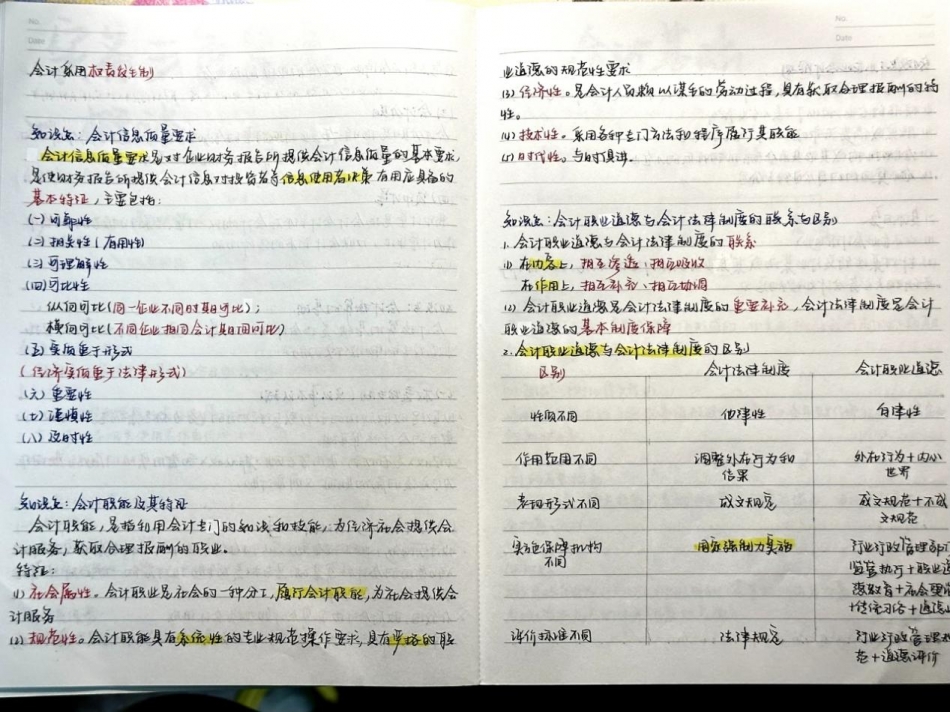 No.
Date
会计采用权责发生制
知识点：会计信息质量要求
会计信息质量要求是对企业财务报告所提供会计信息质量的基本要求，
是使财务报告所提供会计信息对投资者等信息使用者决策有用应具备的
基本特征，主要包括：
(一)可靠性
(二)相关性(有用性)
(三)可理解性
(四)可比性
纵向可比(同一企业不同时期可比)；
横向可比(不同企业相同会计期间可比)
(五)实质重于形式
(经济实质重于法律形式)
(六)重要性
(七)谨慎性
(八)及时性
知识点：会计职能及其特征
会计职能，是指利用会计专门的知识和技能，为经济社会提供会
计服务，获取合理报酬的职业。
特征：
(1)社会属性。会计职业是社会的一种分工，履行会计职能，为社会提供会
计服务
(2)规范性。会计职能具有系统性的专业规范操作要求，具有严格的职
No.
Date
业道德的规范性要求
(3)经济性。是会计人员赖以谋生的劳动过程，具有获取合理报酬的特
性。
(4)技术性。采用各种专门方法和程序履行其职能
(5)时代性。与时俱进。
知识点：会计职业道德与会计法律制度的联系与区别
1.会计职业道德与会计法律制度的联系
(1)在内容上，相互渗透、相互吸收
在作用上，相互补充、相互协调
(2)会计职业道德是会计法律制度的重要补充，会计法律制度是会计
职业道德的基本制度保障
2.会计职业道德与会计法律制度的区别
区别 会计法律制度 会计职业道德
性质不同 他律性 自律性
作用范围不同 调整外在行为和结果 外在行为+内心世界
表现形式不同 成文规定 成文规范+不成文规范
实施保障机构不同 国家强制力实施 行业行政管理部门监管执行+职业道德教育+社会+传统习俗+道德
评价标准不同 法律规定 行业行政管理规范+道德评价